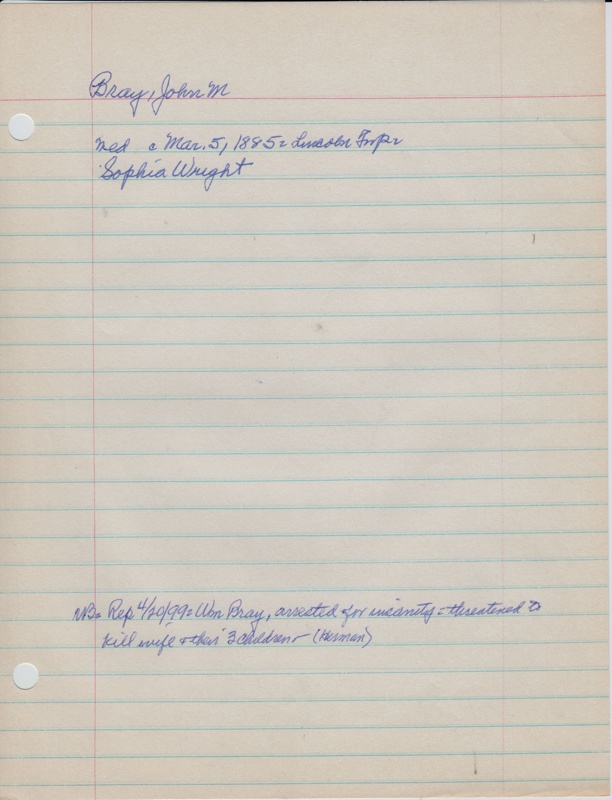 Bray, John M
med c Mar. 5, 1885 = Lincoln Twp =
Sophia Wright
NB = Rep 4/20/99 = Wm Bray, arrested for insanity = threatened to
kill wife + their 3 children - (Herman)